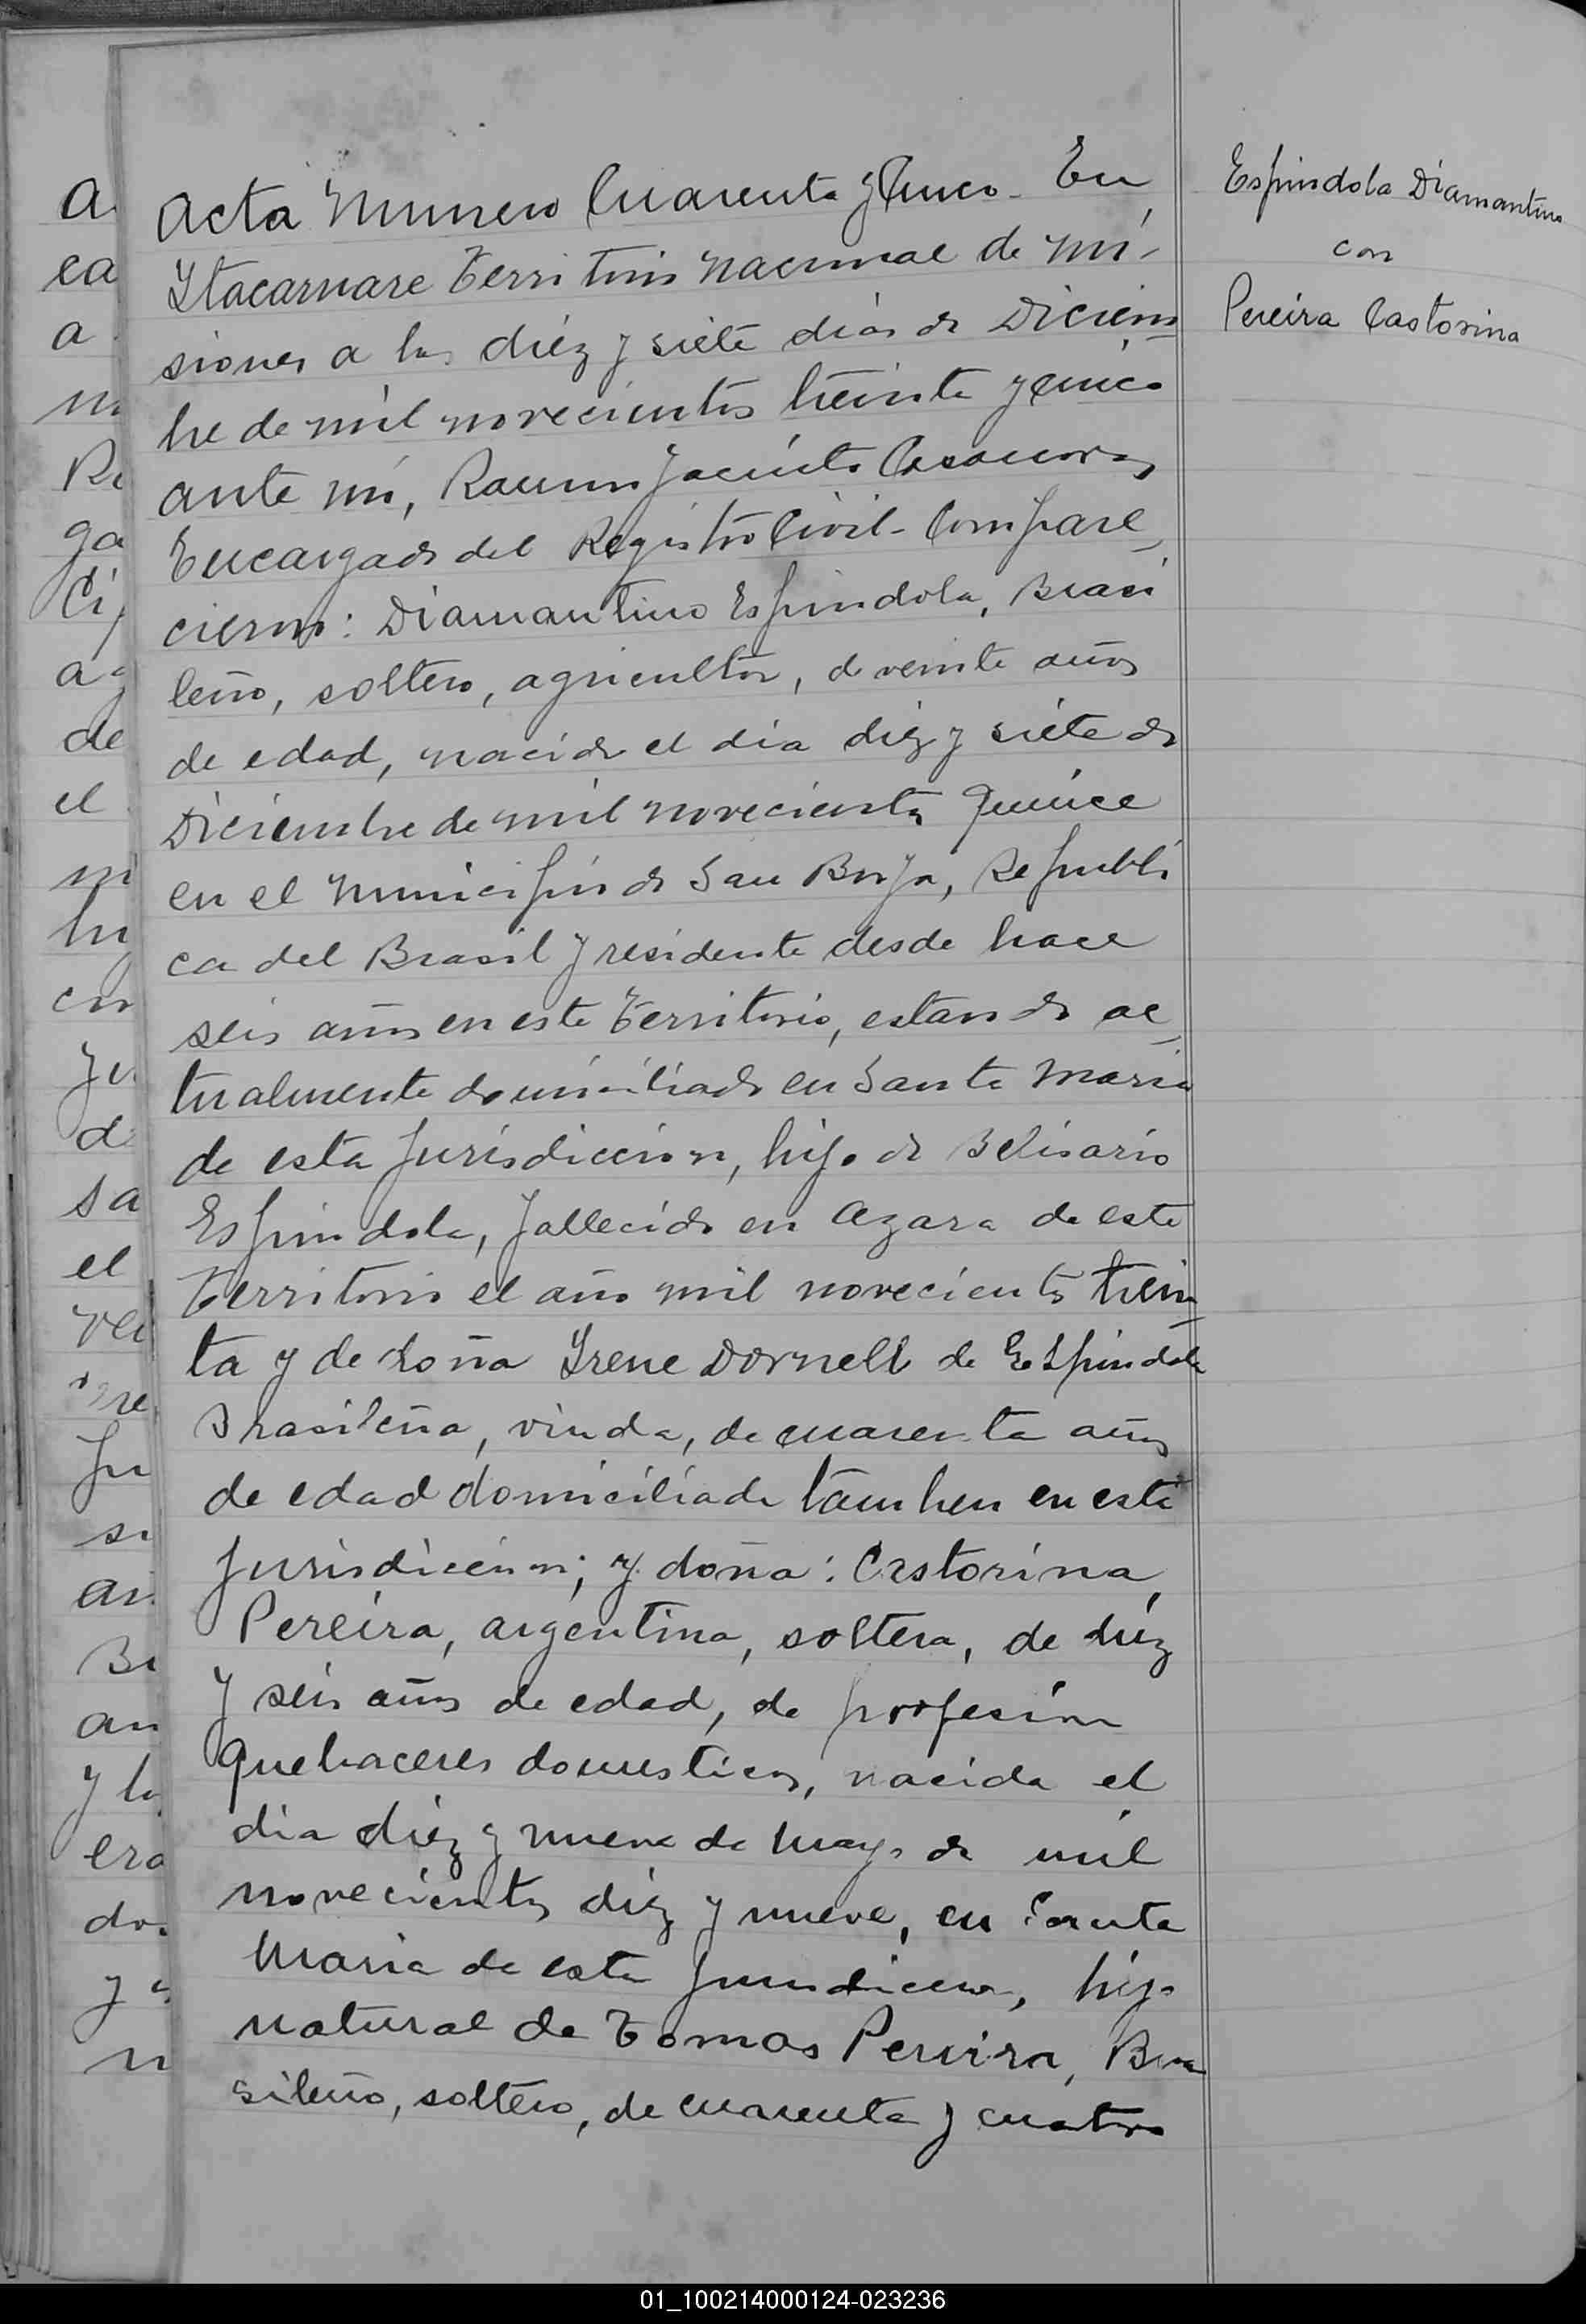 Acta Numero Cuarenta y Cinco. En
Ytacaruare Territorio Nacional de Mi-
siones a los diéz y siete dias de Diciem-
bre de mil novecientos treinta y cinco
ante mi, Ramon Jacinto Casanova,
Encargado del Registro Civil - Compare-
cieron: Diamantino Espindola, Brasi
leño, soltero, agricultor, de veinte años
de edad, nacido el dia diez y siete de
Diciembre de mil novecientos quince
en el Municipio de San Borja, Republi
ca del Brasil y residente desde hace
seis años en este Territorio, estando ac-
tualmente domiciliado en Santa Maria
de esta Jurisdiccion, hijo de Belisario
Espindola, fallecido en Azara de este
Territorio el año mil novecientos trein-
ta y de doña Yrene Dornell de Espindola
Brasileña, viuda, de cuarenta años
de edad domiciliada tambien en esta
Jurisdiccion; y doña: Castorina
Pereira, argentina, soltera, de diez
y seis años de edad, de profesion
quehaceres domesticos, nacida el
dia diez y nueve de Mayo de mil
novecientos diez y nueve, en Santa
Maria de esta Jurisdiccion, hija
natural de Tomas Pereira, Bra
sileño, soltero, de cuarenta y cuatro
Espindola Diamantino
con
Pereira Castorina
a
ca
a
Ra
ga
Ci
de
el
sa
el
Br
an
era
01_100214000124-023236